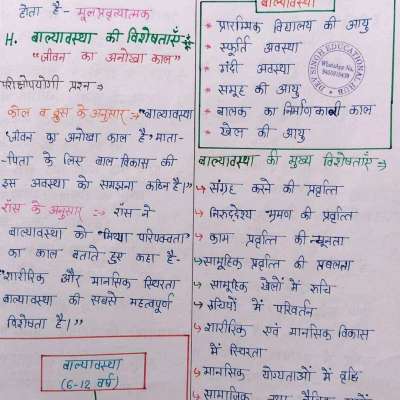 होता है - मूलप्रवृत्यात्मक
H. बाल्यावस्था की विशेषताएँ :-
"जीवन का अनोखा काल"
परीक्षोपयोगी प्रश्न →
कोल व ब्रुस के अनुसार :→ "बाल्यावस्था
'जीवन का अनोखा काल है', माता-
-पिता के लिए बाल विकास की
इस अवस्था को समझना कठिन है।"
रॉस के अनुसार :→ रॉस ने
बाल्यावस्था को "मिथ्या परिपक्वता"
का काल बताते हुए कहा है-
"शारीरिक और मानसिक स्थिरता
बाल्यावस्था की सबसे महत्वपूर्ण
विशेषता है।"
बाल्यावस्था
(6-12 वर्ष)
बाल्यावस्था
* प्रारम्भिक विद्यालय की आयु
* स्फूर्ति अवस्था
* गंदी अवस्था
* समूह की आयु
* बालक का निर्माणकारी काल
* खेल की आयु
DEV SINGH EDUCATIONAL HUB
WhatsApp No.
बाल्यावस्था की मुख्य विशेषताएँ →
↳ संग्रह करने की प्रवृत्ति
↳ निरुद्देश्य भ्रमण की प्रवृत्ति
↳ काम प्रवृत्ति की न्यूनता
↳ सामूहिक प्रवृत्ति की प्रबलता
↳ सामूहिक खेलों में रुचि
↳ रुचियों में परिवर्तन
↳ शारीरिक एवं मानसिक विकास
में स्थिरता
↳ मानसिक योग्यताओं में वृद्धि
↳ सामाजिक तथा नैतिक